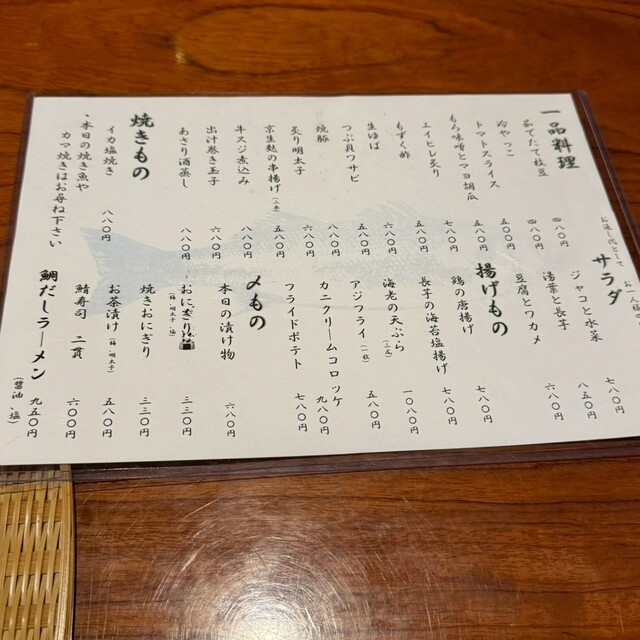 一品料理
茹でたて枝豆 四八〇円
冷やっこ 四八〇円
トマトスライス 五〇〇円
もろ味噌とマヨ胡瓜 五八〇円
エイヒレ炙り 七八〇円
もずく酢 五八〇円
生ゆば 六八〇円
つぶ貝ワサビ 五八〇円
焼豚 八八〇円
炙り明太子 六八〇円
京生麩の串揚げ(二本) 五八〇円
牛スジ煮込み 八八〇円
出汁巻き玉子 六八〇円
あさり酒蒸し 八八〇円
焼きもの
イカ塩焼き 八八〇円
、本日の焼き魚や
カマ焼きはお尋ね下さい
お通し代として
お一人様
サラダ
ジャコと水菜 七八〇円
湯葉と長芋 八五〇円
豆腐とワカメ 七八〇円
揚げもの
鶏の唐揚げ 七八〇円
長芋の海苔塩揚げ 七八〇円
海老の天ぷら(三尾) 一〇八〇円
アジフライ(一枚) 五八〇円
カニクリームコロッケ 九八〇円
フライドポテト 七八〇円
本日の漬け物 六八〇円
〆もの
おにぎり(梅・明太子・塩) 三三〇円
焼きおにぎり 三三〇円
お茶漬け(梅・明太子) 五八〇円
鯖寿司 二貫 六〇〇円
鯛だしラーメン(醤油・塩) 九五〇円